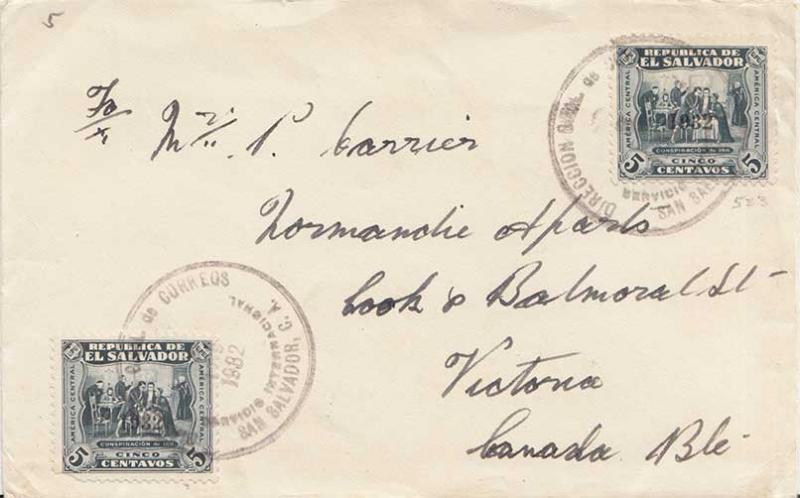 5
To/
Mrs. P. Carrier
Normandie Aparts
Cook & Balmoral St-
Victoria
Canada B.C.
REPUBLICA DE
EL SALVADOR
AMÉRICA CENTRAL
AMÉRICA CENTRAL
1932
CONSPIRACIÓN de 1811
5 CINCO CENTAVOS 5
DIRECCION GRAL de
SERVICIO
SAN SAL
523
REPUBLICA DE
EL SALVADOR
AMÉRICA CENTRAL
AMÉRICA CENTRAL
1932
CONSPIRACIÓN de 1811
5 CINCO CENTAVOS 5
de CORREOS
1932
SERVICIO INTERNACIONAL
SAN SALVADOR, C. A.